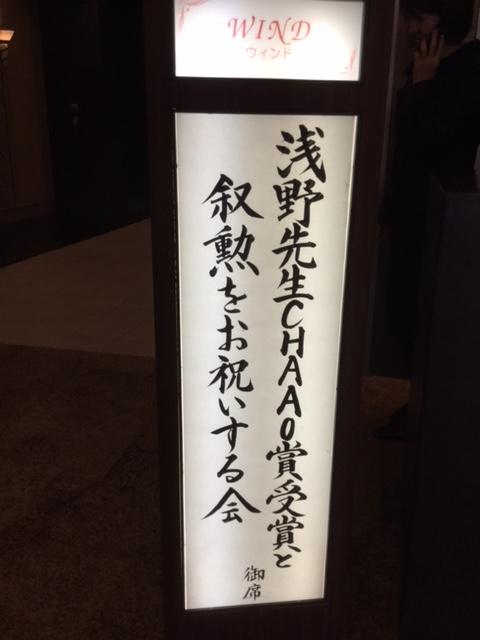 WIND
ウィンド
浅野先生CHAAO賞受賞と
叙勲をお祝いする会
御席